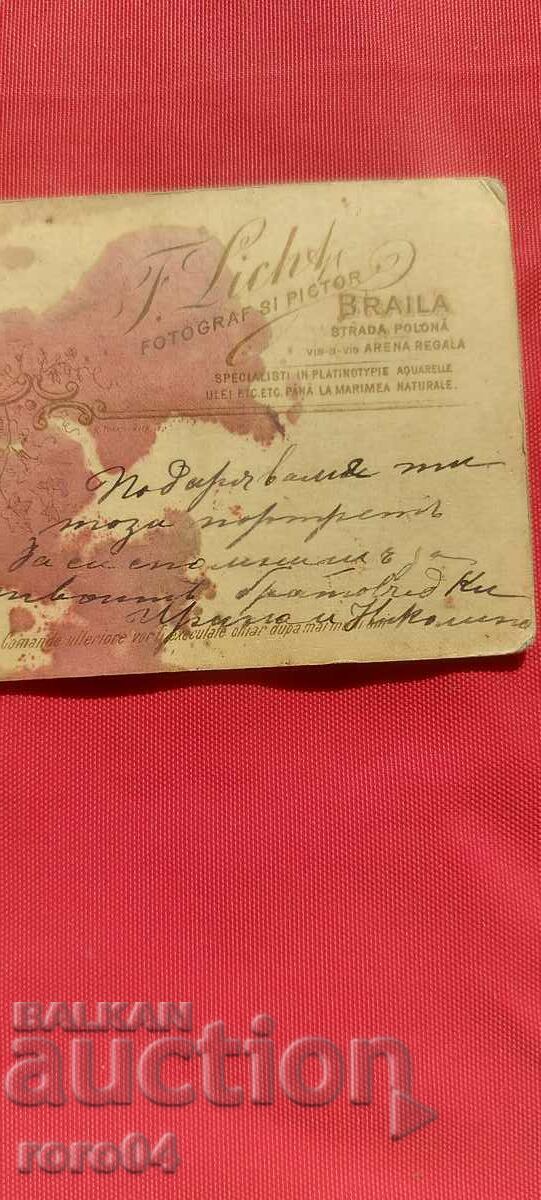 F. Licht
FOTOGRAF SI PICTOR
BRAILA
STRADA POLONĂ
VIS-A-VIS ARENA REGALA
SPECIALISTI IN PLATINOTYPIE AQUARELLE
ULEI ETC. ETC. PÂNĂ LA MARIMEA NATURALE.
Подарявамя ти
тоза портретъ
За си спомнишъ за
твоитѣ братовчедки
Ирина и Николина
Comande ulteriore vor fi execulate chiar dupa mai
BALKAN
auction
roro04